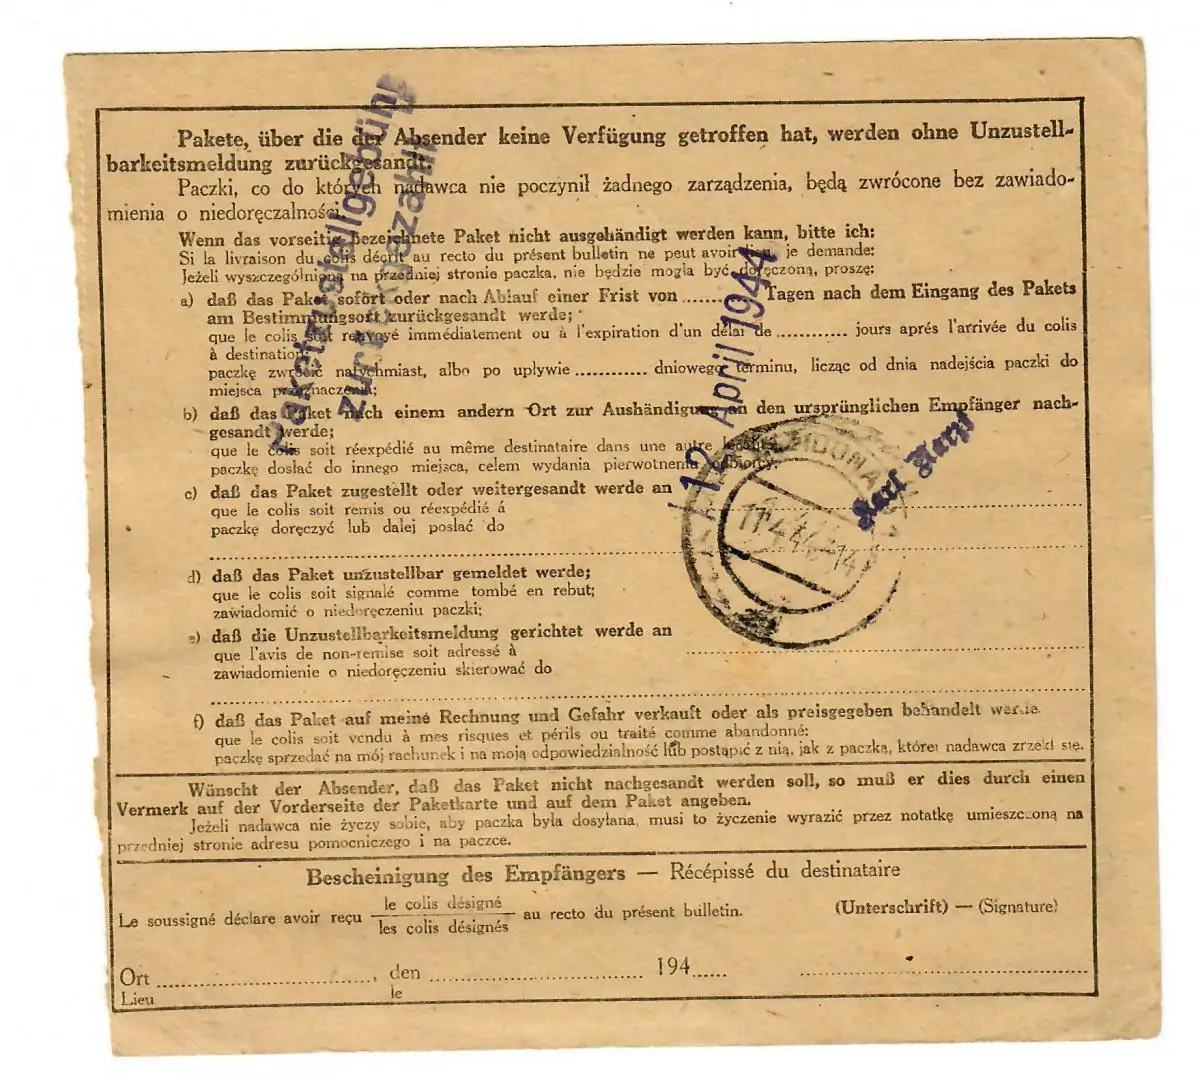 Pakete, über die der Absender keine Verfügung getroffen hat, werden ohne Unzustell-
barkeitsmeldung zurückgesandt.
Paczki, co do których nadawca nie poczynił żadnego zarządzenia, będą zwrócone bez zawiado-
mienia o niedoręczalności.
Wenn das vorseitig bezeichnete Paket nicht ausgehändigt werden kann, bitte ich:
Si la livraison du colis décrit au recto du présent bulletin ne peut avoir lieu, je demande:
Jeżeli wyszczególniona na przedniej stronie paczka, nie będzie mogła być doręczoną, proszę:
a) daß das Paket sofort oder nach Ablauf einer Frist von ........ Tagen nach dem Eingang des Pakets
am Bestimmungsort zurückgesandt werde;
que le colis soit renvoyé immédiatement ou à l'expiration d'un délai de ........... jours aprés l'arrivée du colis
à destination;
paczkę zwrócić natychmiast, albo po upływie ............ dniowego terminu, licząc od dnia nadejścia paczki do
miejsca przeznaczenia;
b) daß das Paket nach einem andern Ort zur Aushändigung an den ursprünglichen Empfänger nach-
gesandt werde;
que le colis soit réexpédié au même destinataire dans une autre
paczkę dosłać do innego miejsca, celem wydania pierwotnemu odbiorcy;
c) daß das Paket zugestellt oder weitergesandt werde an
que le colis soit remis ou réexpédié á
paczkę doręczyć lub dalej posłać do
d) daß das Paket unzustellbar gemeldet werde;
que le colis soit signalé comme tombé en rebut;
zawiadomić o niedoręczeniu paczki;
e) daß die Unzustellbarkeitsmeldung gerichtet werde an
que l'avis de non-remise soit adressé à
zawiadomienie o niedoręczeniu skierować do
f) daß das Paket auf meine Rechnung und Gefahr verkauft oder als preisgegeben behandelt werde.
que le colis soit vendu à mes risques et périls ou traité comme abandonné:
paczkę sprzedać na mój rachunek i na moją odpowiedzialność lub postąpić z nią, jak z paczką, której nadawca zrzekł się.
Wünscht der Absender, daß das Paket nicht nachgesandt werden soll, so muß er dies durch einen
Vermerk auf der Vorderseite der Paketkarte und auf dem Paket angeben.
Jeżeli nadawca nie życzy sobie, aby paczka była dosyłana, musi to życzenie wyrazić przez notatkę umieszczoną na
przedniej stronie adresu pomocniczego i na paczce.
Bescheinigung des Empfängers — Récépissé du destinataire
Le soussigné déclare avoir reçu le colis désigné
les colis désignés au recto du présent bulletin.
(Unterschrift) — (Signature)
Ort ............, den ............ 194.....
Lieu le
Paketzustellgebühr
zurückgezahlt
12 April 1944
11.4.44-14
Karl